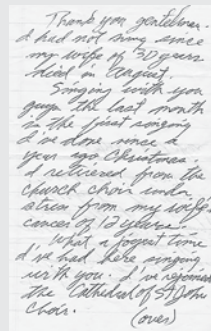 Thank you gentlemen.
I had not sung since
my wife of 30 years
died in August.
Singing with you
guys the last month
is the first singing
I've done since a
year ago Christmas.
I retired from the
church choir under
stress from my wife's
cancer of 12 years.
What a time
I've had here singing
with you. I've rejoined
the Cathedral of St John
Choir.
(over)